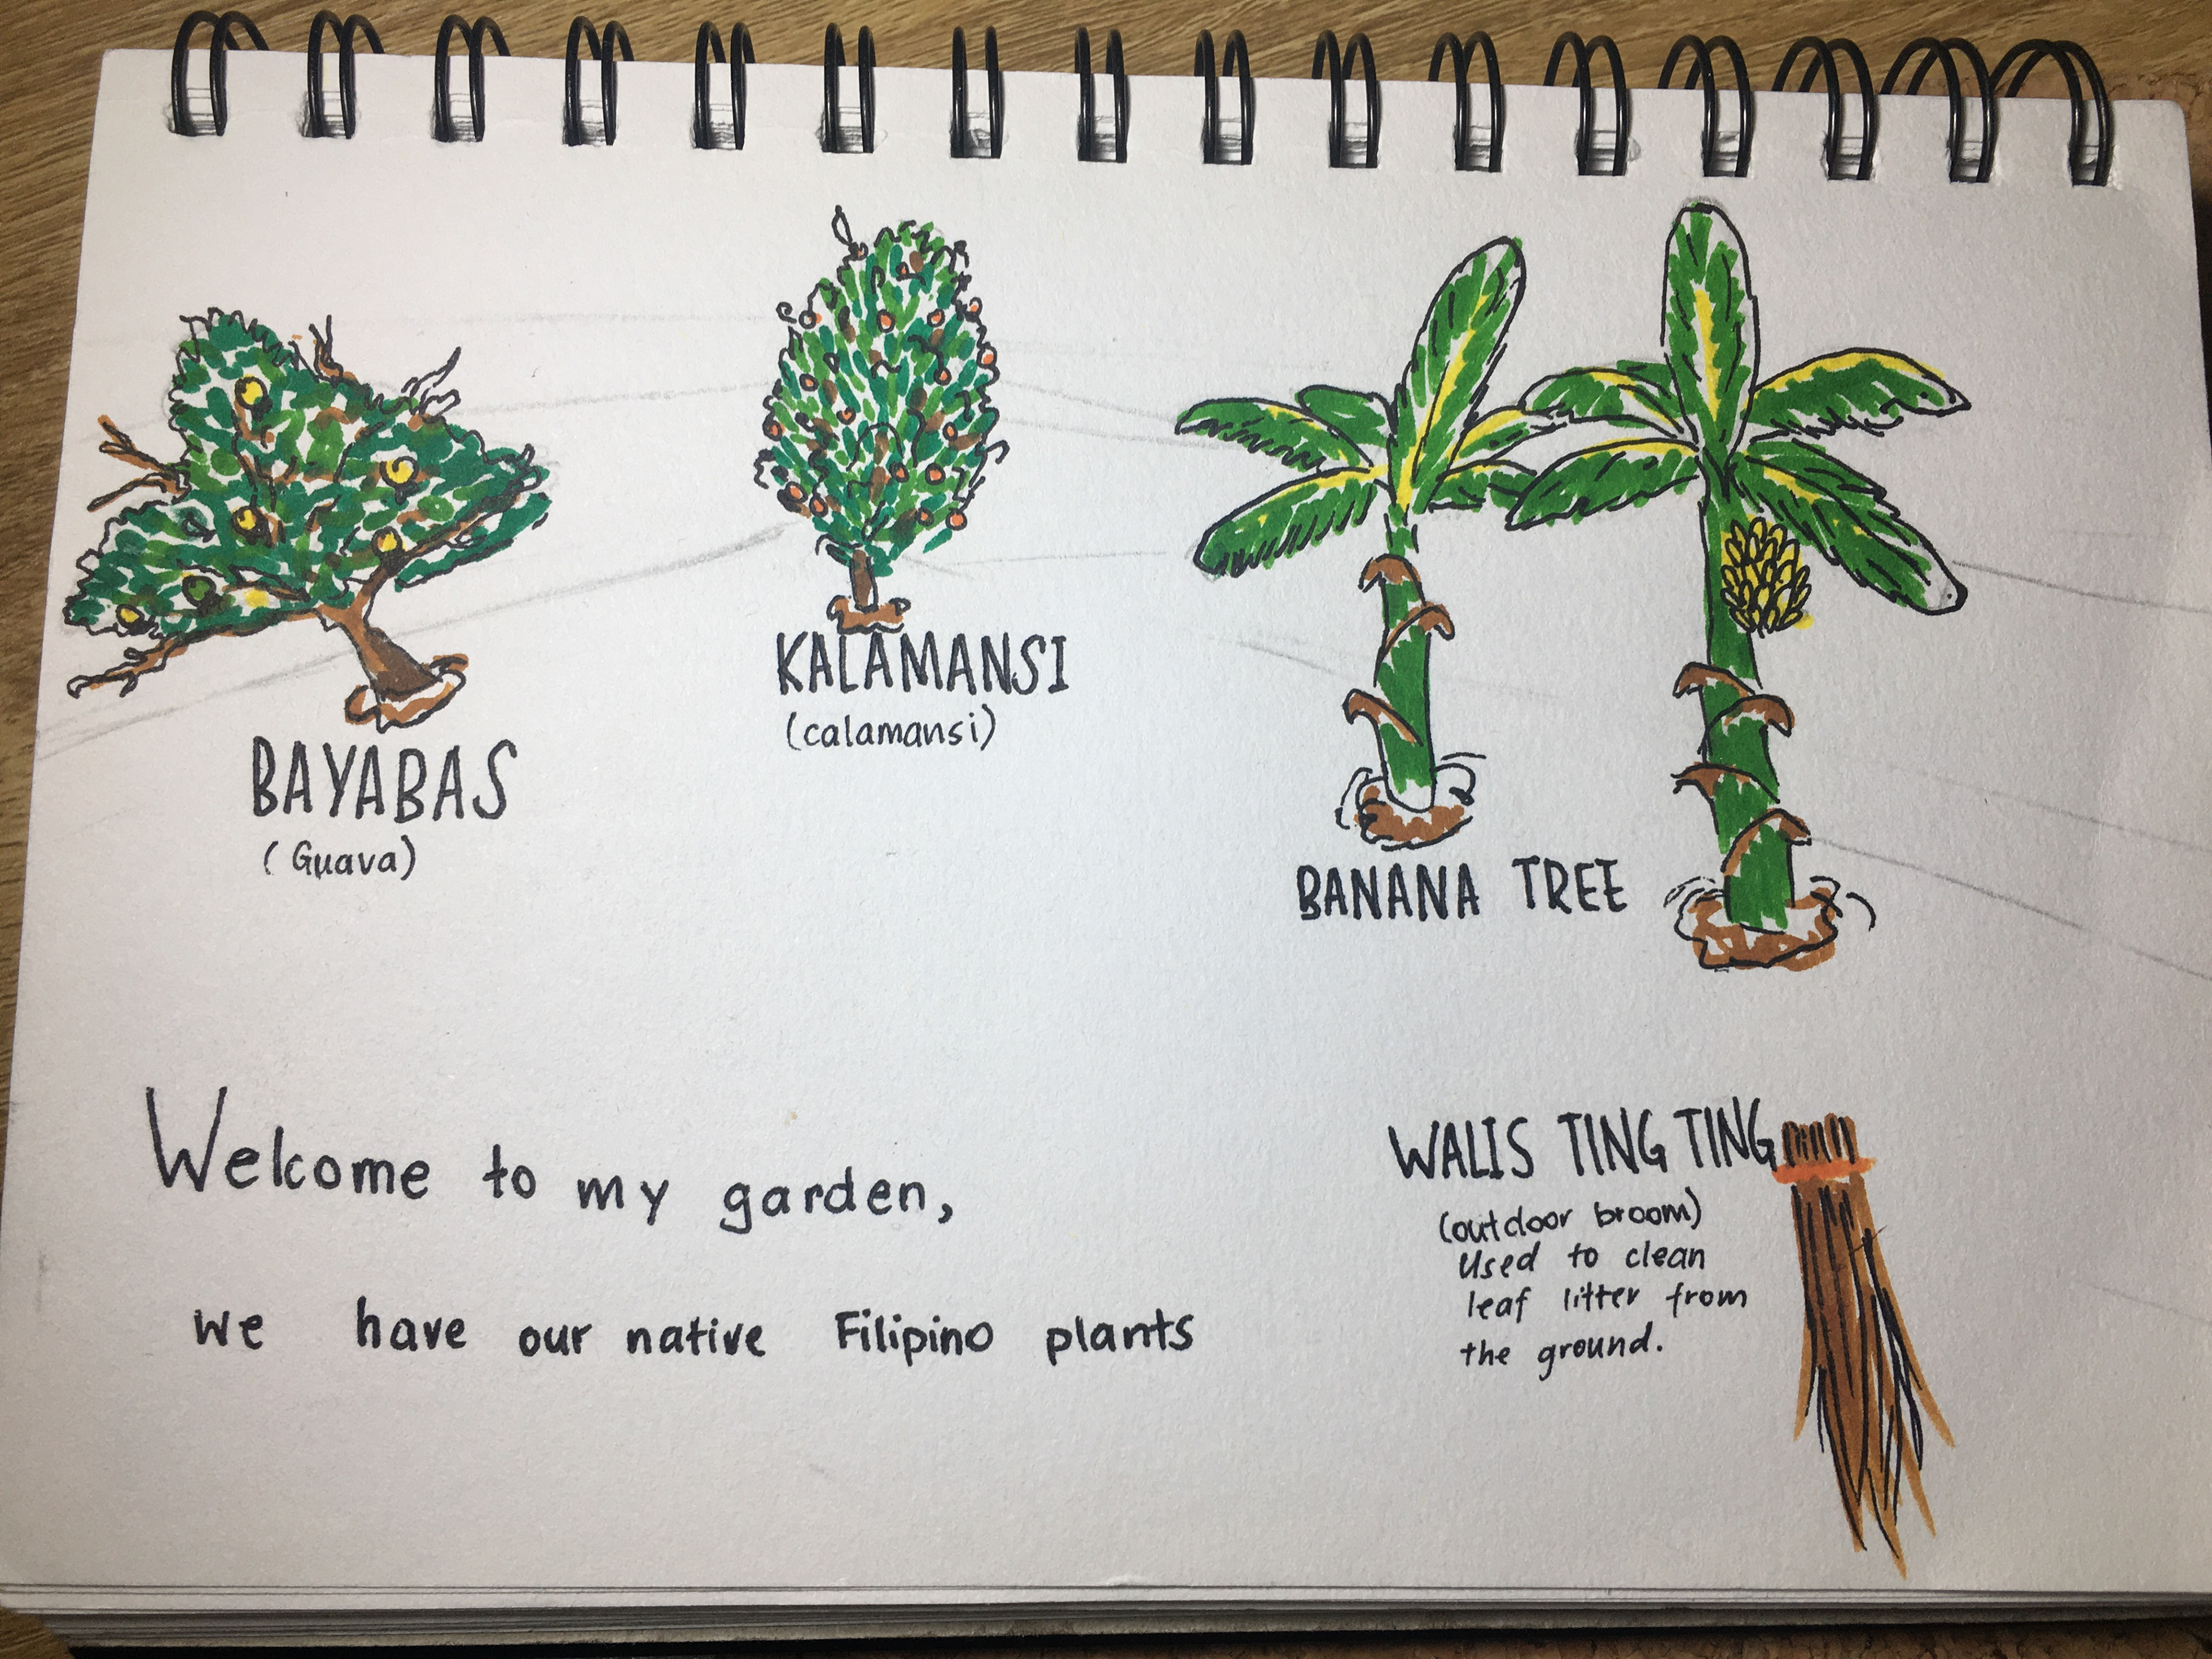 BAYABAS
(Guava)
KALAMANSI
(calamansi)
BANANA TREE
Welcome to my garden,
we have our native Filipino plants
WALIS TING TING
(outdoor broom)
Used to clean
leaf litter from
the ground.